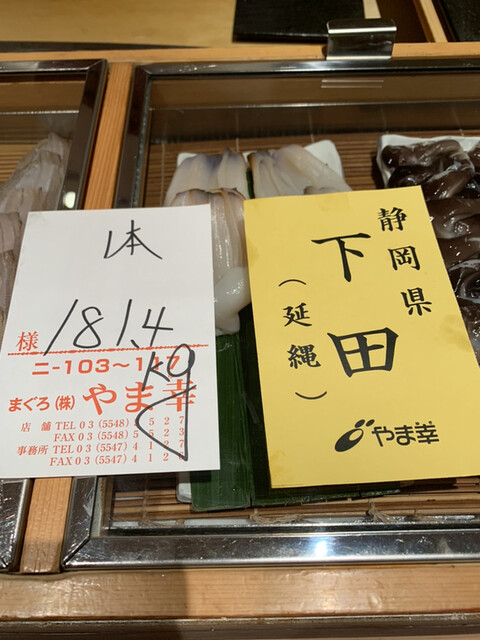 本
181.4
kg
様
ニ-103～117
まぐろ(株)やま幸
店舗 TEL 03(5548)5527
FAX 03(5548)5523
事務所 TEL 03(5547)4127
FAX 03(5547)412
静岡県
下田
(延縄)
やま幸